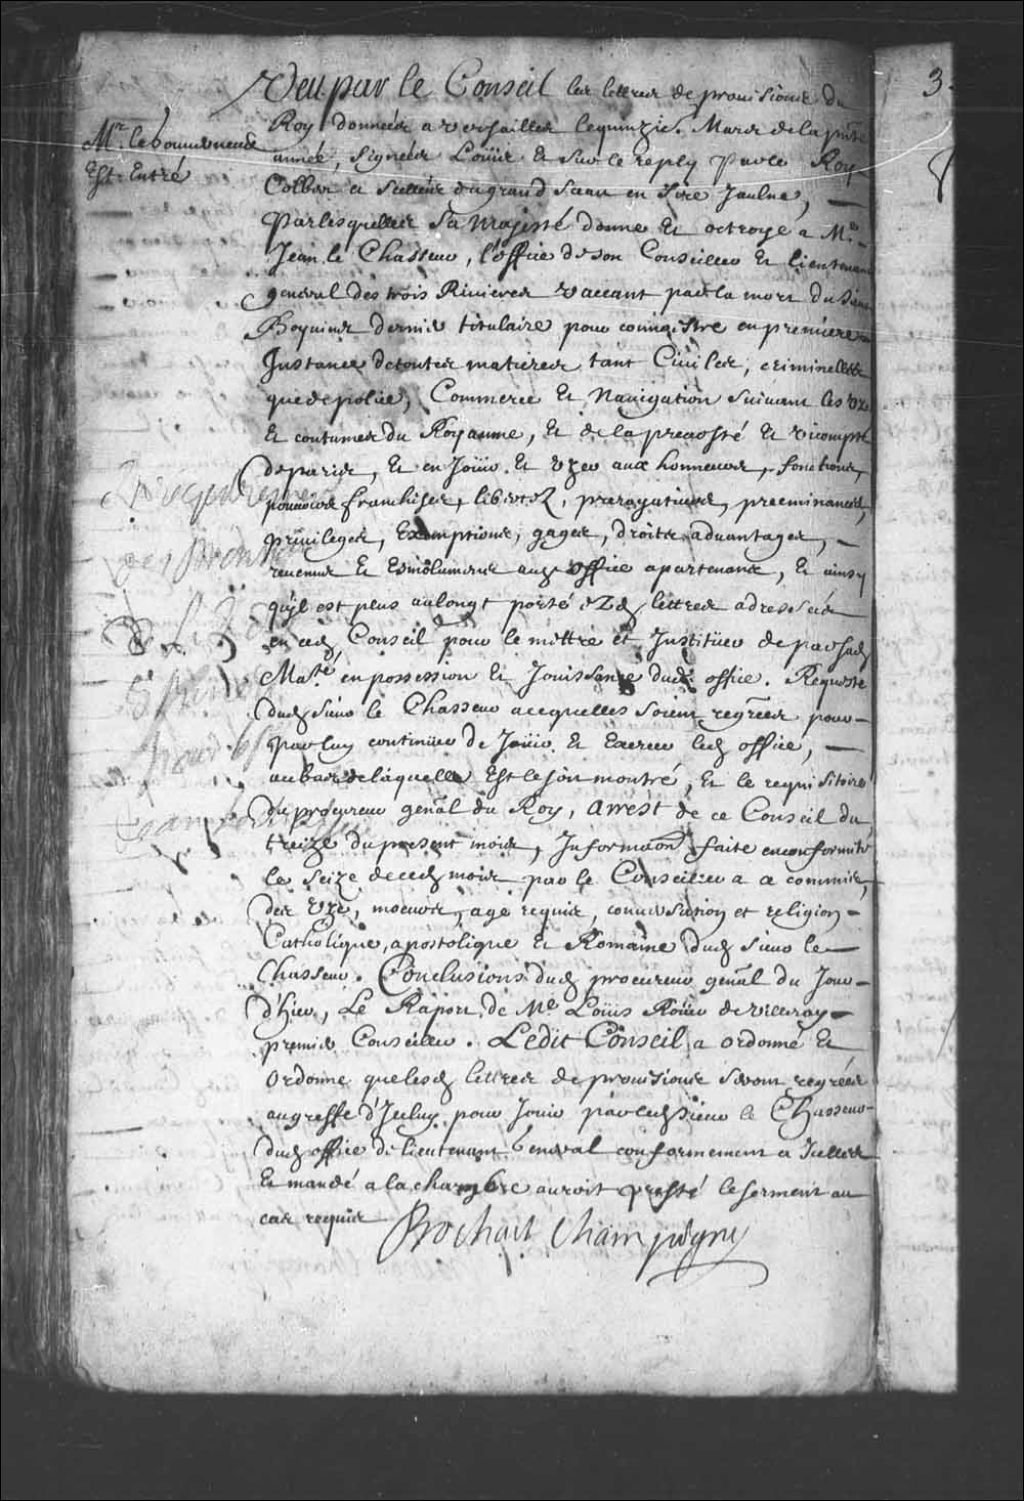 3
Veu par le Conseil les lettres de prouisions du
Mr. le Gouuerneur
Est Entré
Roy données a Versailles le quinzie. Mars de la pnte
année, Signées Loüis Et Sur le reply Par le Roy
Colbert et Scellées du grand Sceau en Cire Jaulne,
Par lesquelles Sa Majesté donne Et octroye a Me.
Jean le Chasseur, l'office de son Conseiller Et lieutenant
general des trois Riuieres vaccant par la mort du Sieur
Boyuinet dernier titulaire pour connoistre en premiere
Instance de toutes matieres tant Ciuiles, criminelles
que de police, Commerce Et Nauigation suiuant les Vz
Et coutumes du Royaume, Et de la preuosté Et vicompté
de paris, Et en Joüir. Et Vzer aux honneurs, fonctions,
pouuoirs franchises, libertez, prerogatiues, preeminances,
priuileges, Exemptions, gages, droits aduantages,
reuenus Et Esmolumens aud. office apartenans, Et ainsy
qu'il est plus au long porté lettres adressées
en ced. Conseil pour le mettre et Instituer de par Sad.
Maté. en possession Et Jouissance dud. office. Requeste
dud. Sieur le Chasseur a ce qu'elles soient regrées pour
par luy continuer de Joüir. Et Exercer led. office,
au bas de laquelle Est le soit montré, Et le requisitoire
du procureur genal du Roy, Arrest de ce Conseil du
treize du present mois, Informaon faite en conformité
le Seize de ced. mois par le Conseiller a ce commis,
des Vie, moeurs, age requis, conuersation et religion
Catholique, apostolique Et Romaine dud. Sieur le
Chasseur. Conclusions dud. procureur genal du Jour
d'hier, Le Raport de Me Loüis Roüer de Villeray
premier Conseiller. Ledit Conseil a ordonné Et
Ordonne que lesd. lettres de prouisions seront regrées
au greffe d'Iceluy pour Jouir par led. Sieur le Chasseur
dud. office de lieutenant General conformement a Icelles
Et mandé a la chambre auroit presté le serment au
cas requis
Bochart Champigny